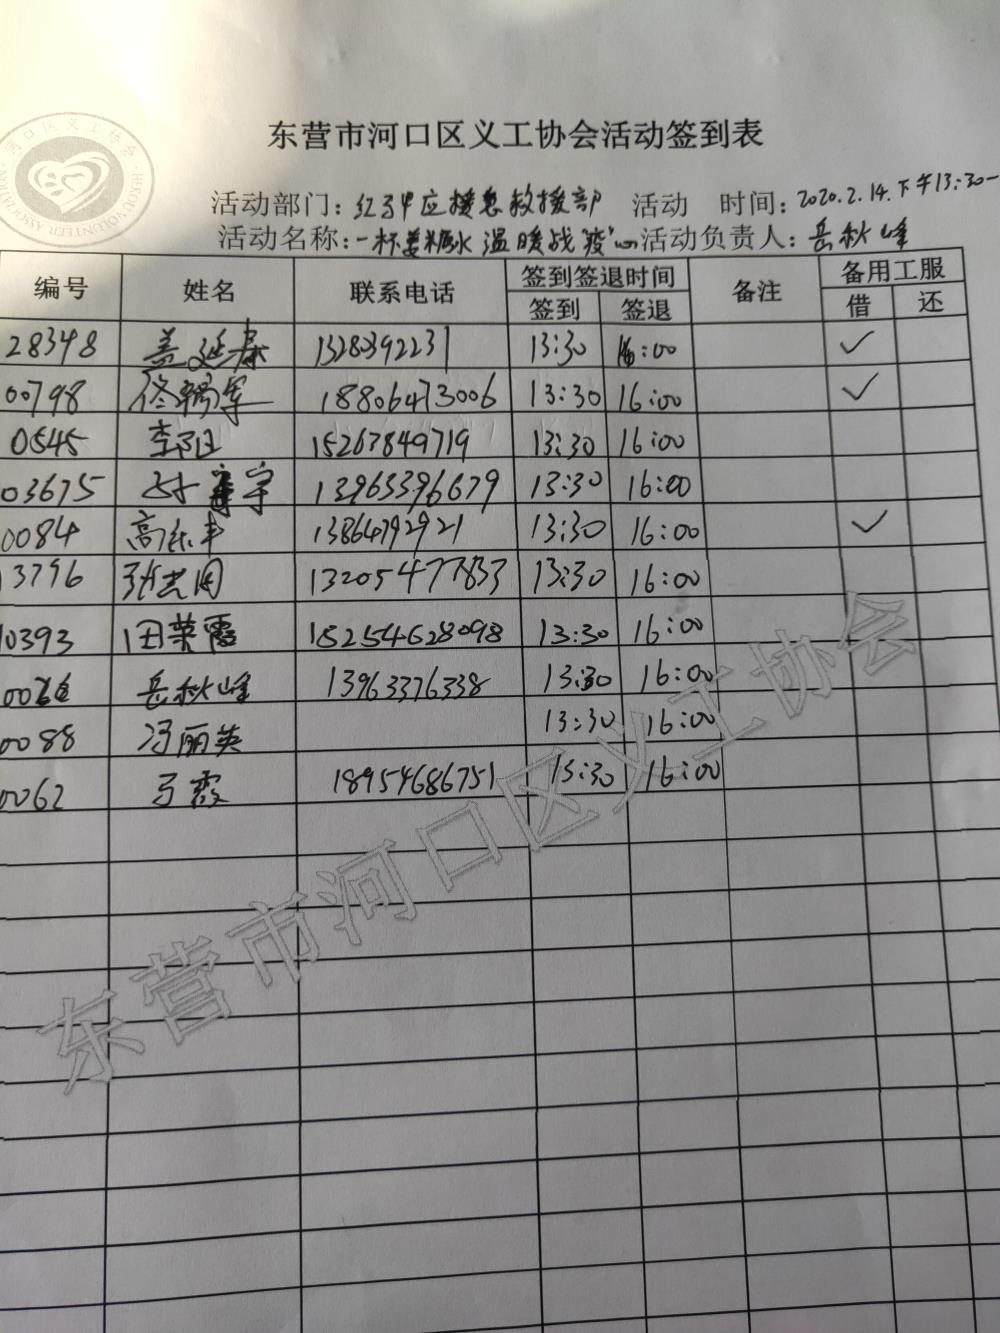 东营市河口区义工协会活动签到表
河口区义工协会 HEKOU VOLUNTEER ASSOCIATION
活动部门：红马甲应援急救援部 活动 时间：2020.2.14.下午13:30—
活动名称：一杯姜糖水温暖战"疫"心 活动负责人：岳秋峰
编号 姓名 联系电话 签到签退时间 备注 备用工服
签到 签退 借 还
28348 盖延春 13280392231 13:30 16:00 ✓
00798 佟锡军 18806473006 13:30 16:00 ✓
0545 李阳 15263849719 13:30 16:00
03675 宇 13963396679 13:30 16:00
0084 高乐丰 13864792921 13:30 16:00 ✓
13796 张艺闰 13205477833 13:30 16:00
10393 田荣霞 15254628098 13:30 16:00
岳秋峰 13963376338 13:30 16:00
0088 冯丽英 13:30 16:00
0062 弓霞 18954686751 13:30 16:00
东营市河口区义工协会